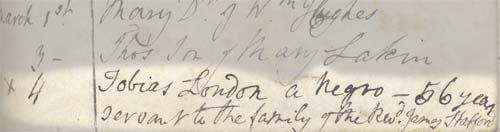 March 1st Mary Dr. of Wm Hughes
3 - Thos Son of Mary Lakin
x 4 Tobias London a Negro - 56 years
servant to the family of the Revd. James Stafford